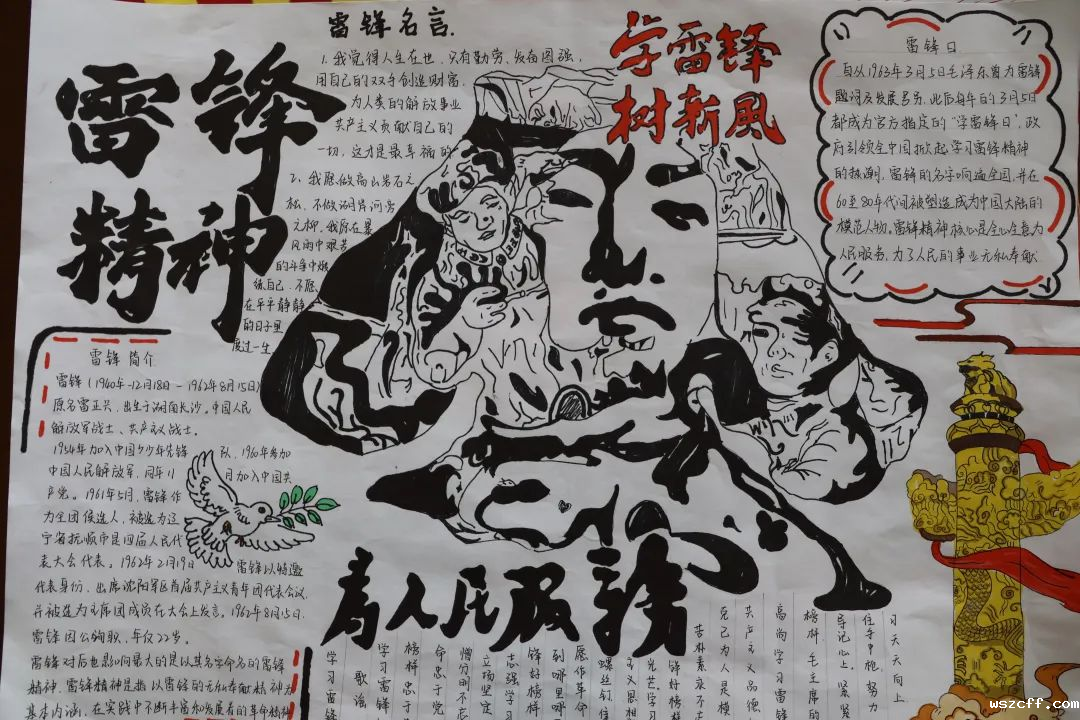 雷锋精神
雷锋名言.
1.我觉得人生在世,只有勤劳,发奋图强,
用自己的双手创造财富,
为人类的解放事业
共产主义贡献自己的
一切,这才是最幸福的
2.我愿做高山岩石之
松,不做湖岸河旁
之柳.我愿在暴
风雨中艰苦
的斗争中煅
练自己.不愿
在平平静静
的日子里
度过一生.
学雷锋
树新風
雷锋日
自从1963年3月5日毛泽东曾为雷锋
题词及发展号召,此后每年的3月5日
都成为官方指定的“学雷锋日”,政
府引领全中国掀起学习雷锋精神
的热潮,雷锋的名字响遍全国,并在
60至80年代间被塑造成为中国大陆的
模范人物。雷锋精神核心是全心全意为
人民服务,为了人民的事业无私奉献.
雷锋简介
雷锋(1940年-12月18日-1962年8月15日)
原名雷正兴,出生于湖南长沙。中国人民
解放军战士、共产主义战士。
1954年加入中国少年先锋队,1960年参加
中国人民解放军,同年11月加入中国共
产党。1961年5月,雷锋作
为全团候选人,被选为辽
宁省抚顺市第四届人民代
表大会代表。1962年2月19日雷锋以特邀
代表身份,出席沈阳军区首届共产主义青年团代表会议,
并被选为主席团成员在大会上发言。1962年8月15日.
雷锋因公殉职,年仅22岁。
雷锋对后也影响最大的是以其名字命名的雷锋
精神,雷锋精神是指以雷锋的无私奉献精神为
基本内涵,在实践中不断丰富和发展着的革命精神
为人民服務
日天天向上
住寺中抱努力
牢记心上,紧紧
榜样,毛主席的
高尚,学习雷锋
共产主义品德
克己为人是模
苦朴素永不
锋好榜样
光艺学习
主义思想
螺丝钉
愿作革命
到哪里哪
锋好榜样
志强学习
立场坚定
憎分明不忘
命忠于党
榜样忠于
学习雷锋
歌词
学习雷锋
wszcff.com